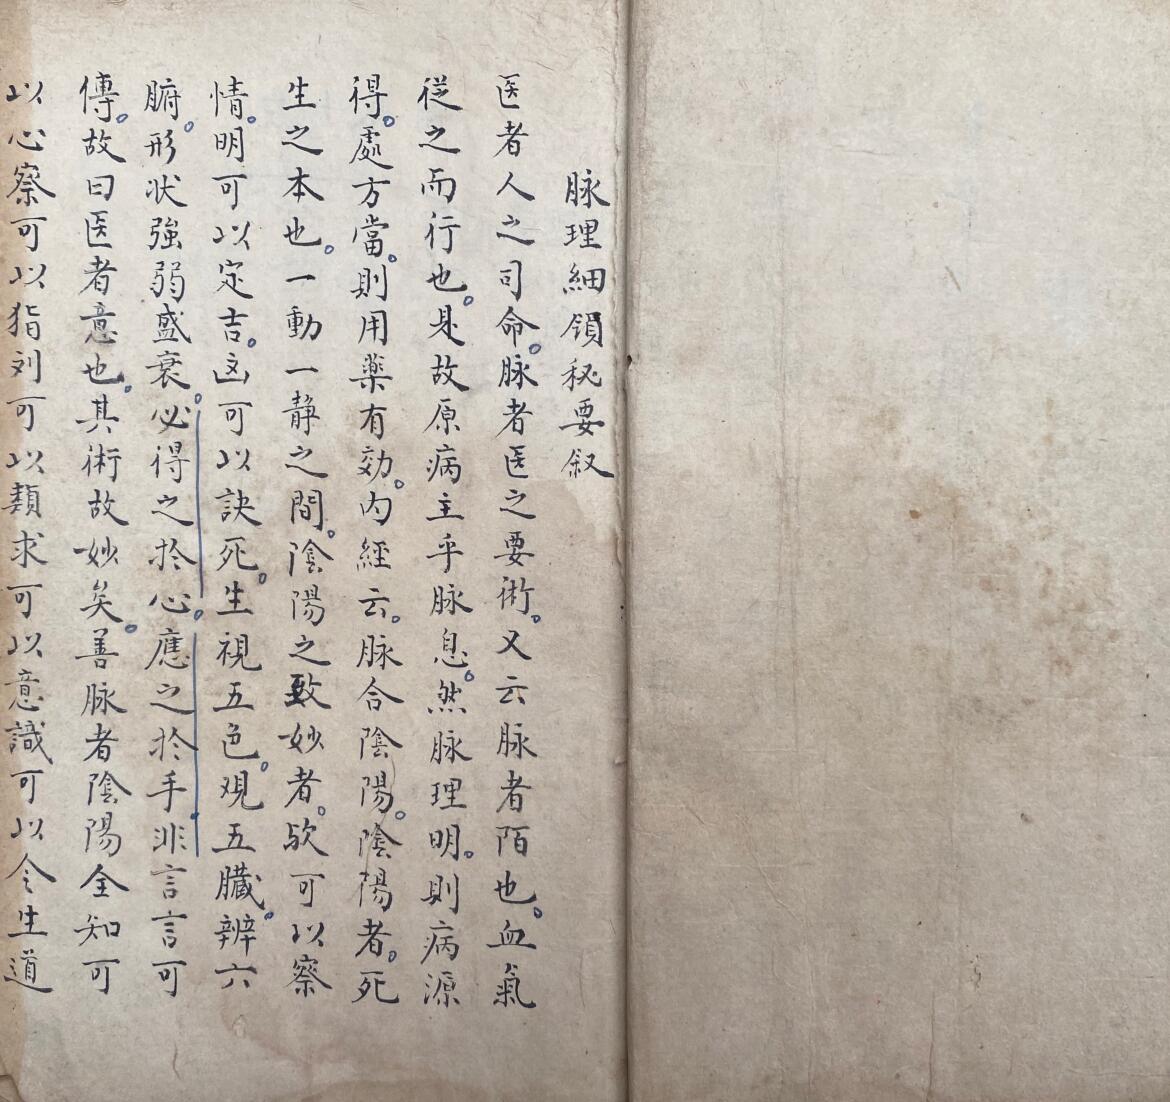 脉理細領秘要叙
医者人之司命。脉者医之要術。又云脉者陌也。血氣
从之而行也。是故原病主乎脉息。然脉理明。則病源
得。處方當。則用薬有効。内經云。脉合陰陽。陰陽者。死
生之本也。一動一静之間。陰陽之致妙者。欤可以察
情。明可以定吉。凶可以訣死。生視五色。观五臓。辨六
腑。形状強弱盛衰。必得之於心。應之於手非言言可
傳。故曰医者意也。其術故妙矣。善脉者陰陽全知可
以心察可以指别可以類求可以意識可以令生道